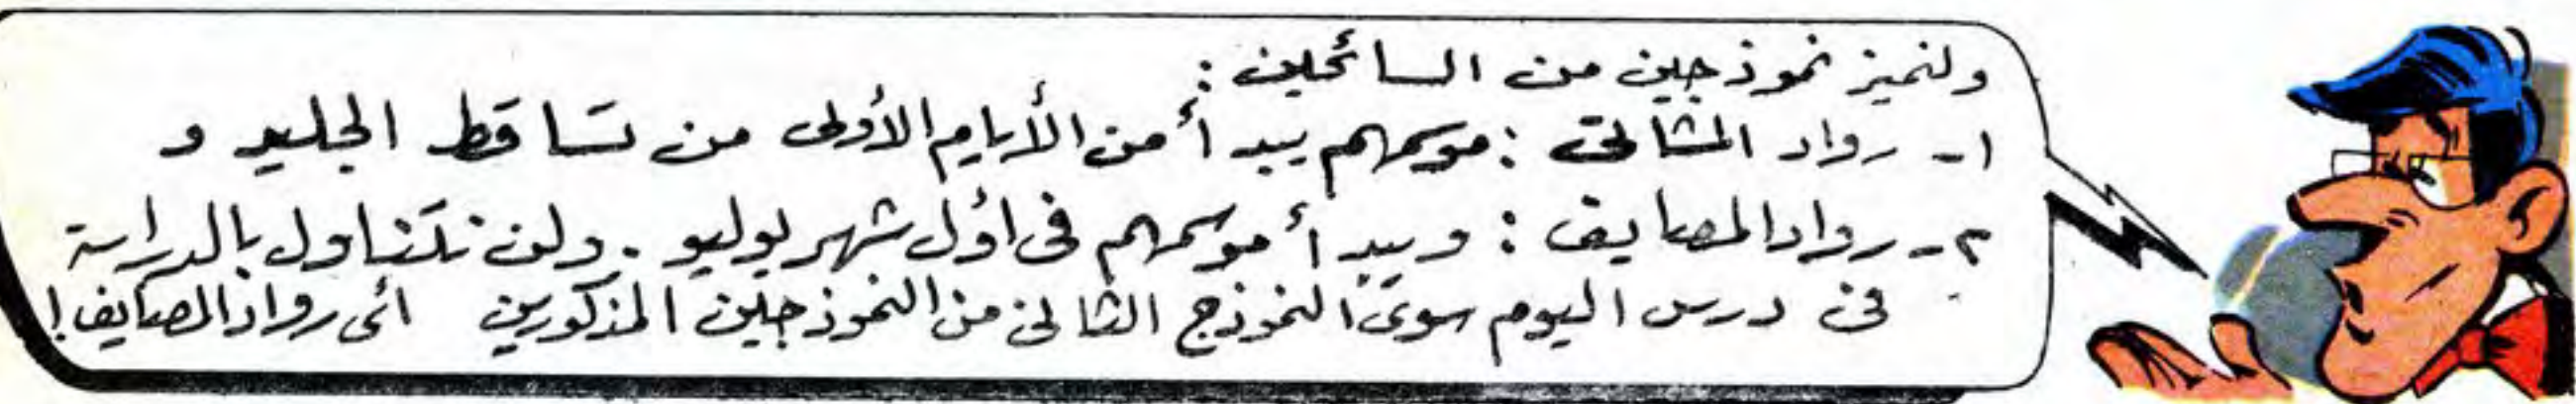 ولنميز نموذجين من السائحين :
١- رواد المشاتى : موسمهم يبدأ من الأيام الأولى من تساقط الجليد و
٢- رواد المصايف : ويبدأ موسمهم فى أول شهر يوليو . ولن نتناول بالدراسة
فى درس اليوم سوى النموذج الثانى من النموذجين المذكورين أى رواد المصايف !